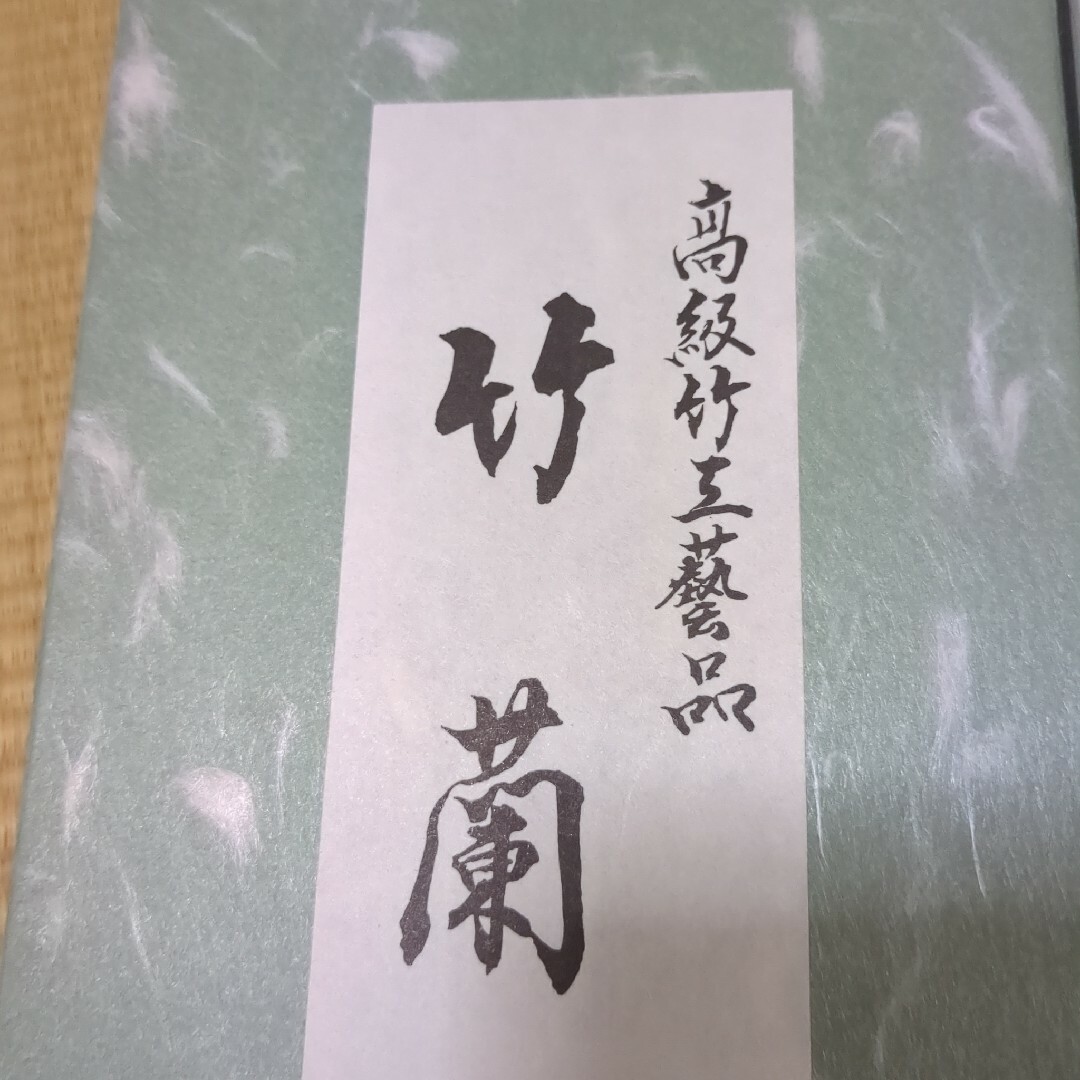 高級竹工藝品
竹蘭